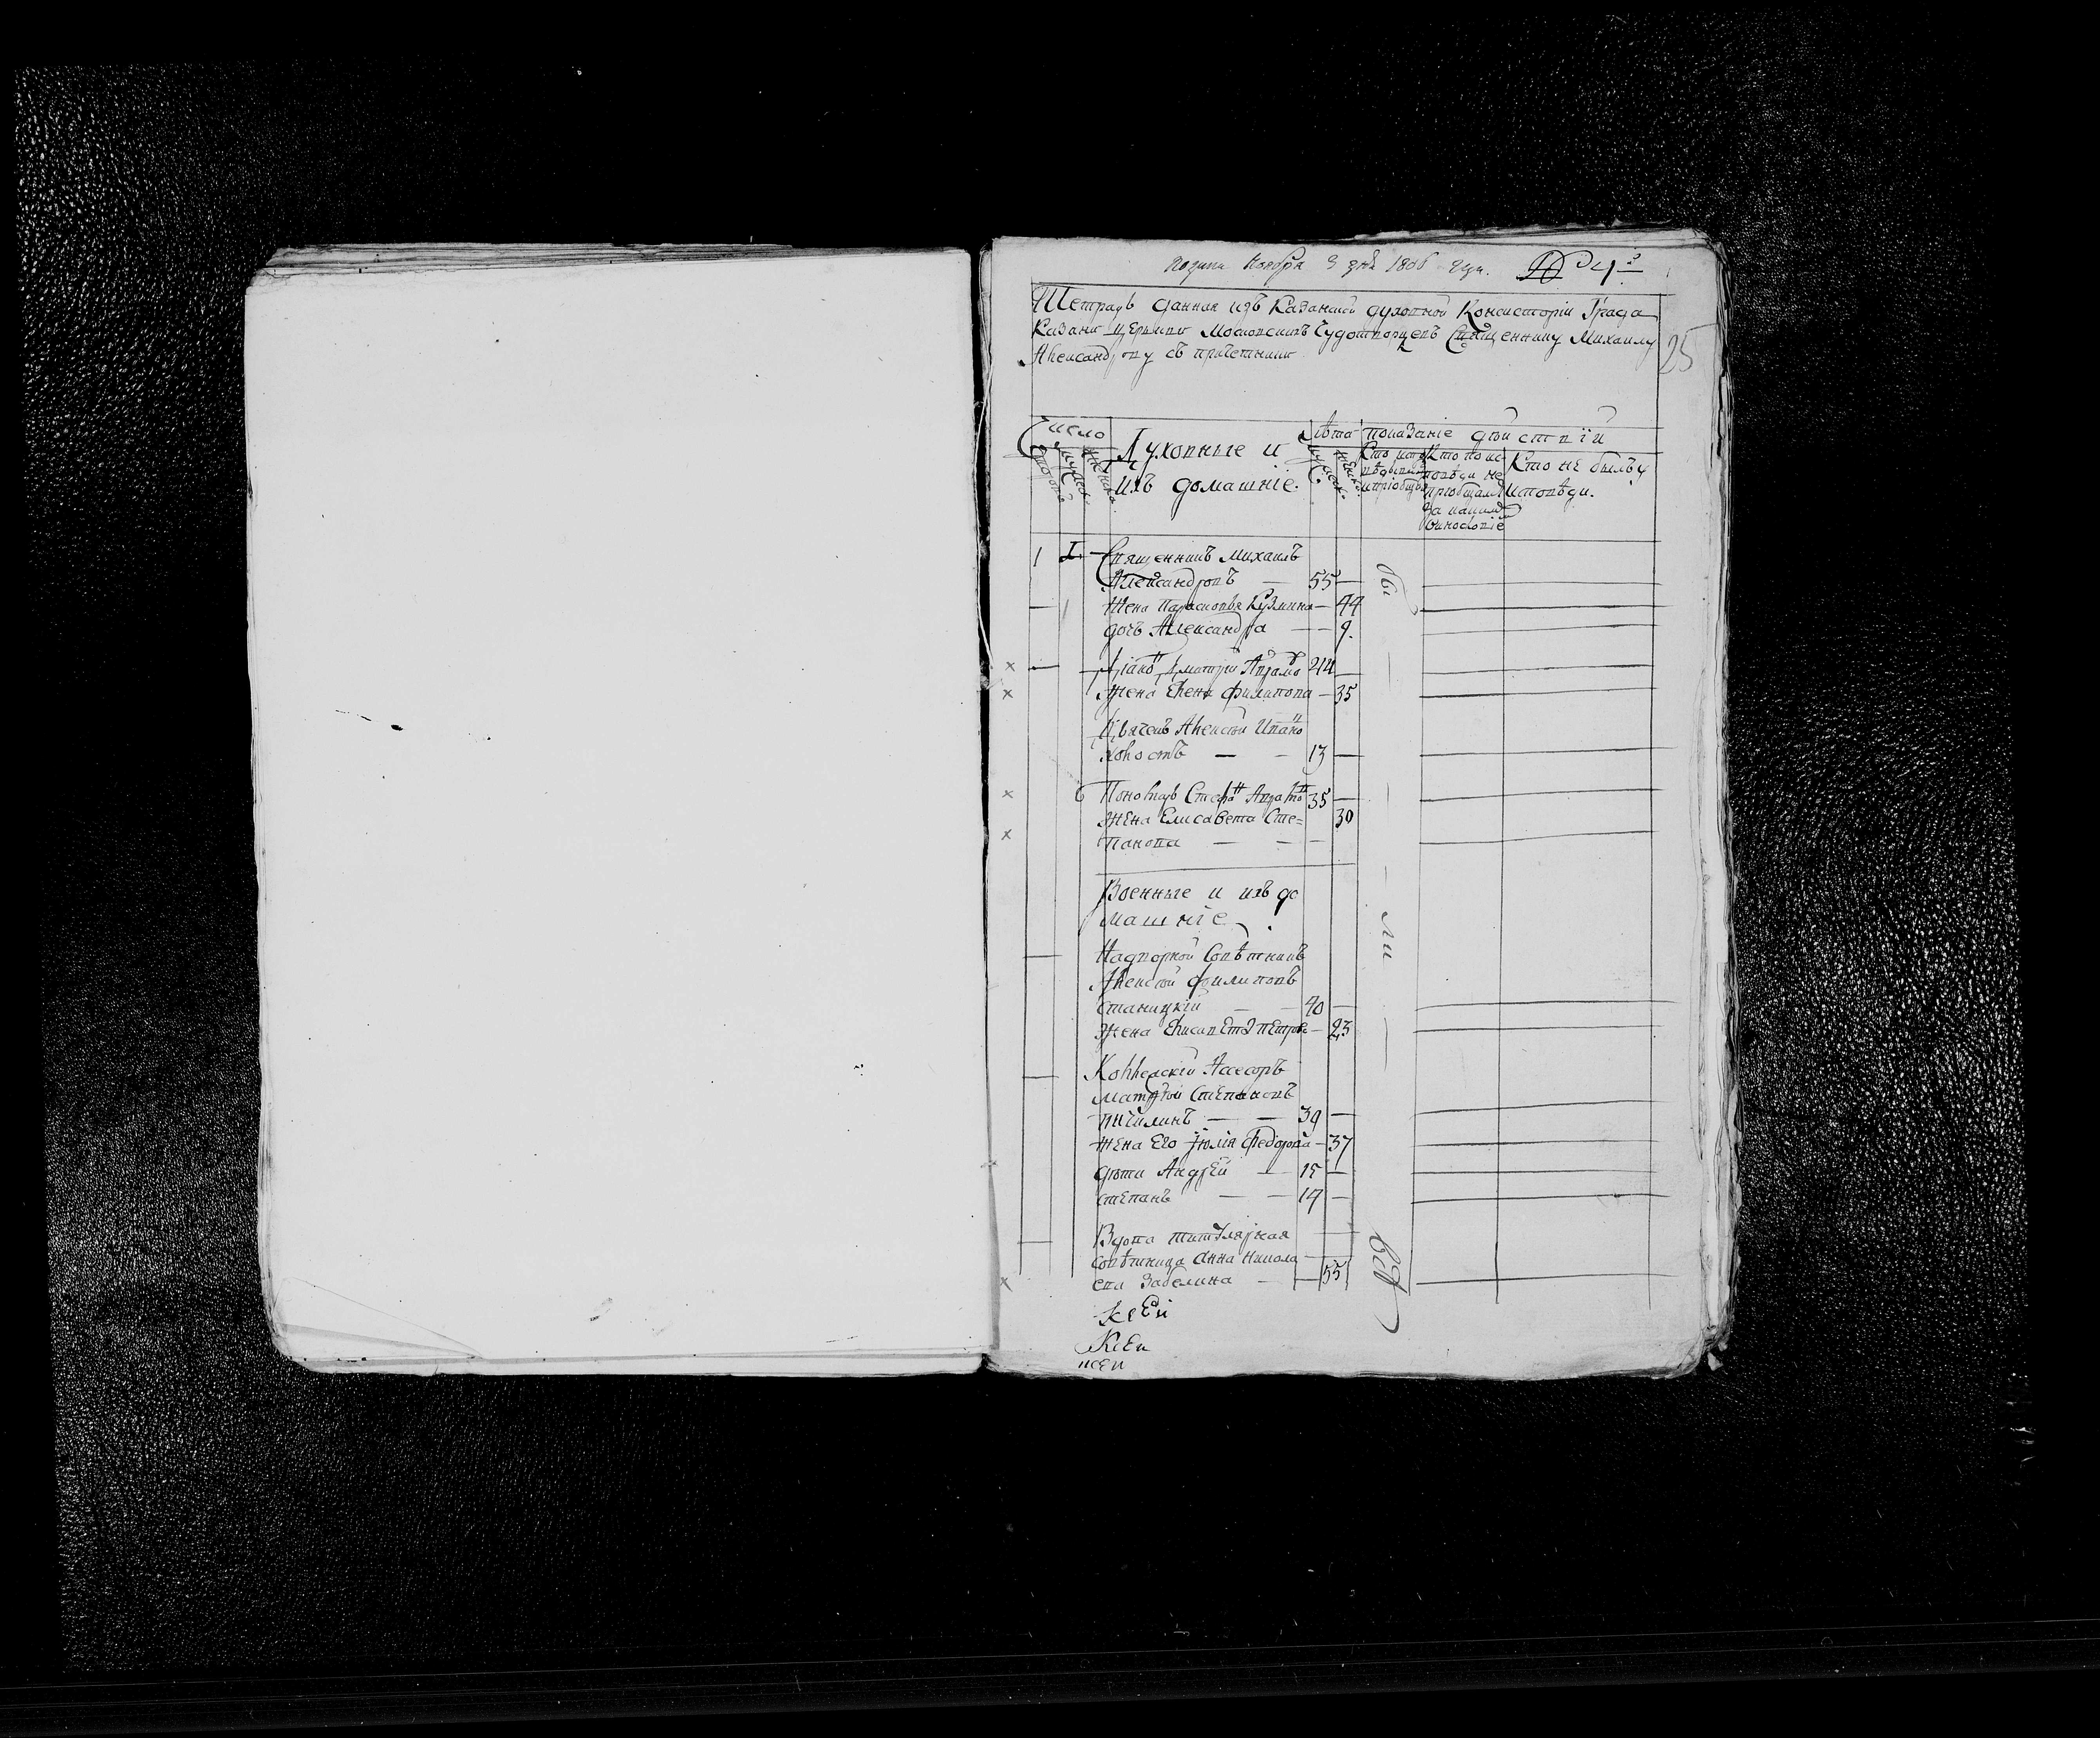 Подана Ноября 9 дня 1806 года. № 4й
25
Тетрадь данная изъ Казанской духовной Консисторіи Града
Казани церкви Московскихъ Чудотворцевъ Священнику Михаилу
Александрову съ причетники
Число
Лѣта
показаніе дѣйствій
дворовъ
мужеска
женска
Духовные и
ихъ домашніе.
мужеск.
женска
Кто исповѣдыв. и пріобщ.
Кто по исповѣди не пріобщался за какимъ винословіе
Кто не былъ у исповѣди.
1 1 Священникъ Михаилъ
Александровъ — 55 —
Жена Парасковья Кузмина — 44
дочь Александра — — 9.
Діаконъ Дмитрій —
Жена Елена Филипова — 35
Дьячекъ Алексѣй Ивановъ
холостъ — — 13 —
Пономарь Стефанъ 35 —
Жена Елисавета Сте= 30
панова — — —
Военные и ихъ до
машніе
Надворной Совѣтникъ
Алексѣй Филиповъ
Станицкій — — 40 —
Жена Елисавета Петрова — 23
Коллежскій Ассесоръ
Матвѣй Степановъ
— — 39 —
Жена Его Іюлія Федорова — 37
дѣти Андрей — 15 —
Степанъ — — 14 —
Вдова титулярная
совѣтница Анна Никола
ева Забелина — — 55
бы — — — ли — всѣ